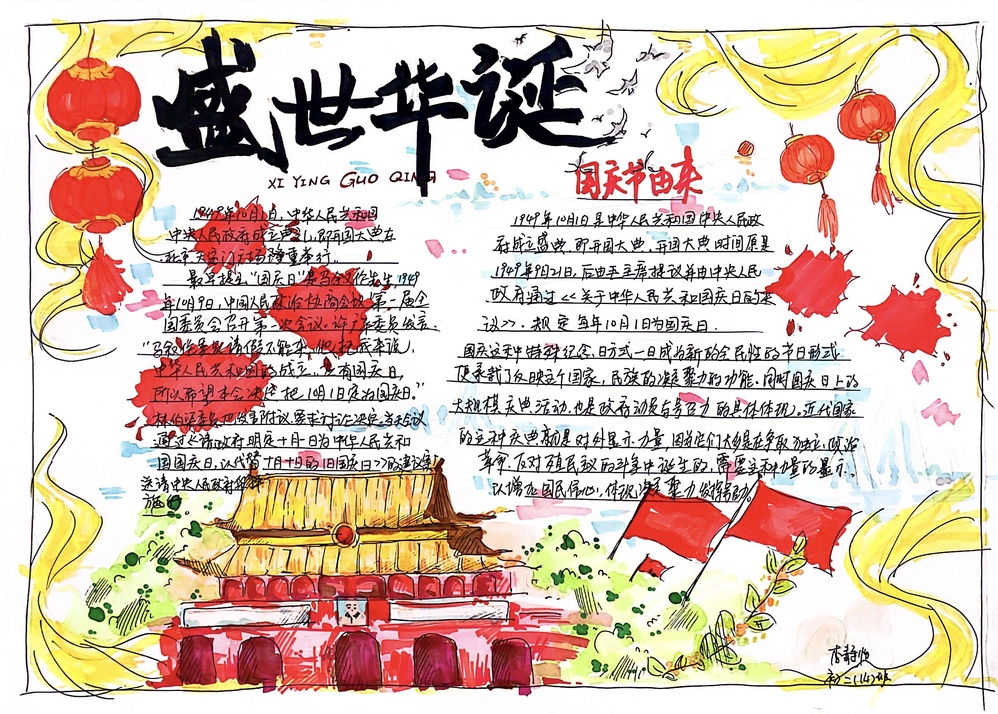 盛世华诞
XI YING GUO QING
1949年10月1日,中华人民共和国
中央人民政府成立典礼,即开国大典在
北京天安门广场隆重举行。
最早提出"国庆日"是马叙伦先生1949
年10月9日,中国人民政治协商会议第一届全
国委员会召开第一次会议,许广平委员发言:
"马叙伦委员请假不能来,他托我来说,
中华人民共和国的成立,应有国庆日,
所以希望本会决定把10月1日定为国庆日。"
林伯渠委员也发言附议要求讨论决定,当天会议
通过《请政府明定十月一日为中华人民共和
国国庆日,以代替十月十日的旧国庆日>>的建议案,
送请中央人民政府
施。
国庆节由来
1949年10月1日是中华人民共和国中央人民政
府成立盛典,即开国大典,开国大典时间原是
1949年9月21日,后由毛主席提议并由中央人民
政府通过<<关于中华人民共和国国庆日的决
议>>,规定每年10月1日为国庆日.
国庆这种特殊纪念日方式一旦成为新的全民性的节日形式
便承载了反映这个国家,民族的凝聚力的功能。同时国庆日上的
大规模庆典活动,也是政府动员与号召力的具体体现。近代国家
的这种庆典就是对外显示力量,因为它们大多是在争取独立,政治
革命,反对殖民主义的斗争中诞生的,需要这种力量的显示,
以增加国民信心,体现凝聚力,发挥号召力。
初二(14)班